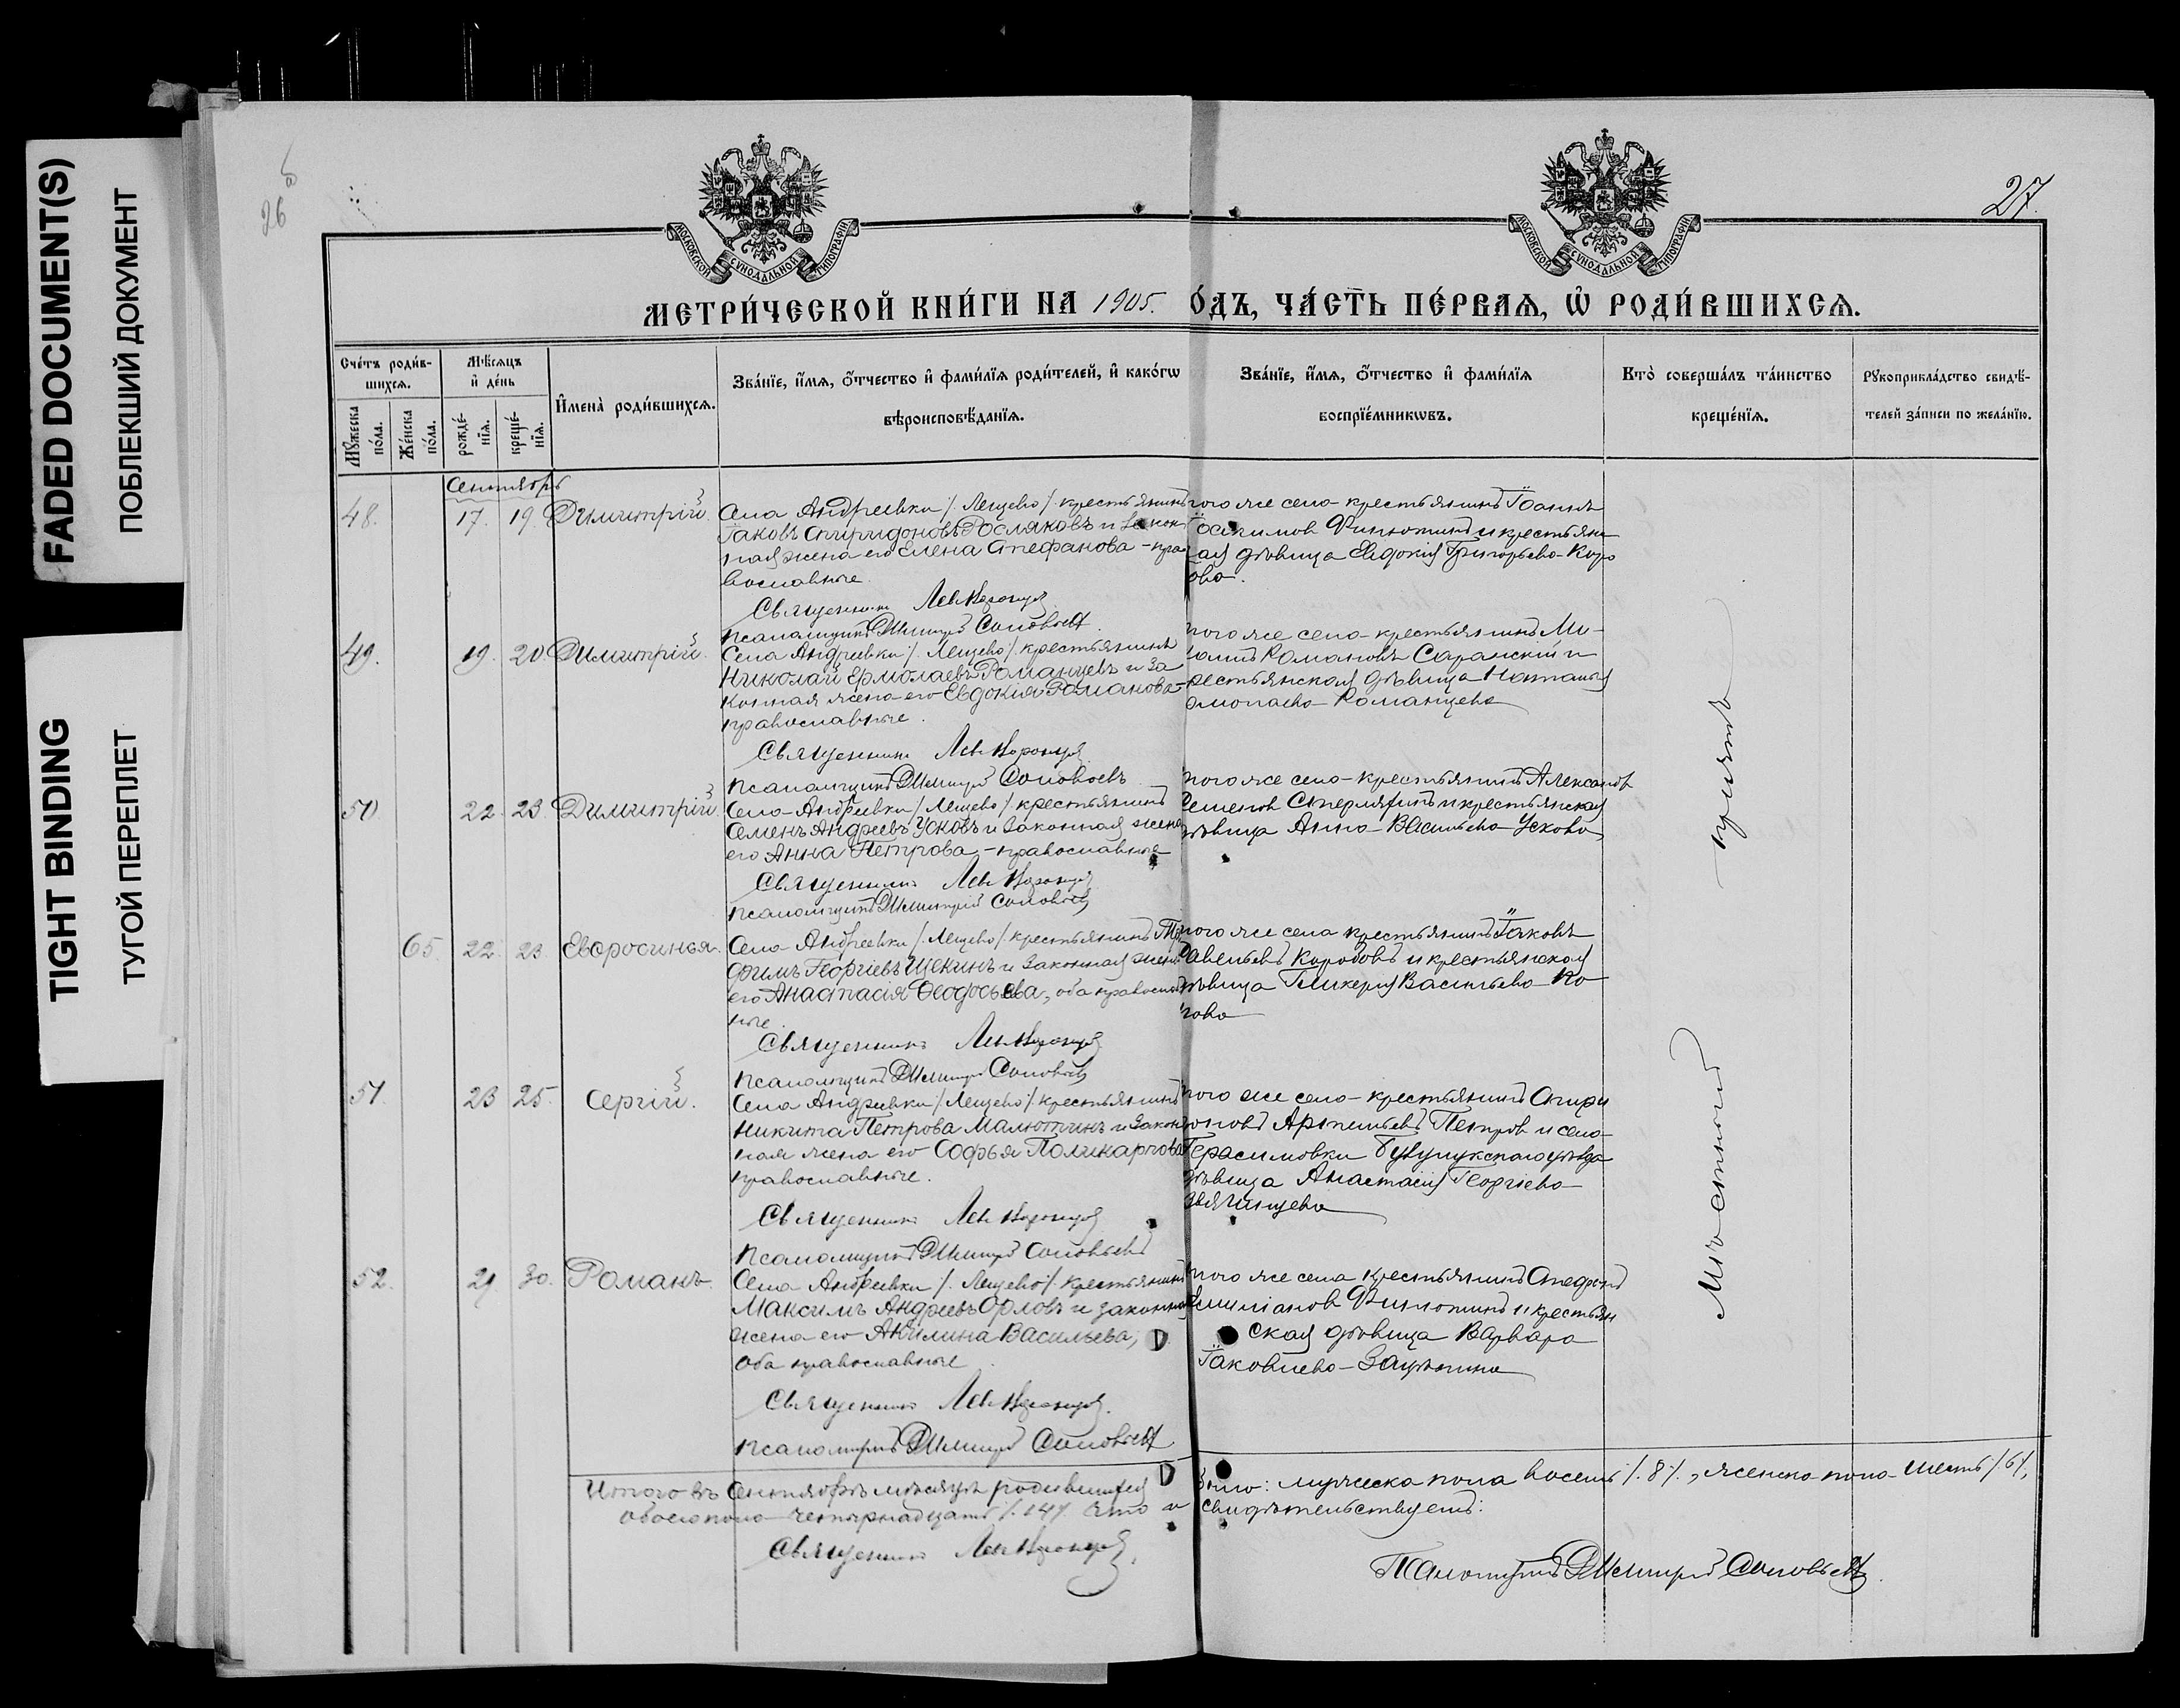 FADED DOCUMENT(S)
ПОБЛЕКШИЙ ДОКУМЕНТ
TIGHT BINDING
ТУГОЙ ПЕРЕПЛЕТ
26
27.
МОСКОВСКОЙ СУНОДАЛЬНОЙ ТИПОГРАФІИ
МОСКОВСКОЙ СУНОДАЛЬНОЙ ТИПОГРАФІИ
МЕТРИ́ЧЕСКОЙ КНИ́ГИ НА 1905. ОДЪ, ЧА́СТЬ ПЕ́РВАЯ, Ѡ РОДИ́ВШИХСЯ.
Сче́тъ роди́в-
шихся.
Мꙋ́жеска по́ла.
Же́нска по́ла.
Мѣ́сяцъ
и҆ де́нь
рожде́-
нїя.
креще́-
нїя.
И҆мена̀ роди́вшихся.
Зва́нїе, и҆́мя, ѻ҆́тчество и҆ фами́лїя роди́телей, и҆ како́гѡ
вѣроисповѣ́данїя.
Зва́нїе, и҆́мя, ѻ҆́тчество и҆ фами́лїя
воспрїе́мникѡвъ.
Кто̀ соверша́лъ та́инство
креще́нїя.
Рꙋкоприкла́дство свидѣ́-
телей за́писи по жела́нїю.
Сентябрь
48. 17. 19. Димитрій.
Села Андреевки /. Лещево /. крестьянинъ
Іаковъ Спиридоновъ Росляковъ и закон
ная жена его Елена Стефанова - пра
вославные.
Священникъ
Псаломщикъ Димитрій Соловьевъ
того же села крестьянинъ Іоаннъ
и крестьян
ая дѣвица Евдокія Григорьева
ова.
49. 19. 20. Димитрій.
Села Андреевки /. Лещево /. крестьянинъ
Николай Ермолаевъ Романцевъ и за
конная жена его Евдокия Романова -
православные.
Священникъ
Псаломщикъ Димитрій Соловьевъ
того же села крестьянинъ Ми-
Романовъ Саранскій и
рестьянская дѣвица Наталія
рмолаева Романцева
50. 22. 23. Димитрій.
Села Андреевки /. Лещево /. крестьянинъ
Семенъ Андреевъ Усковъ и законная жена
его Анна Петрова, - православные
Священникъ
Псаломщикъ Димитрій Соловьевъ
того же села крестьянинъ Александръ
и крестьянская
дѣвица Анна Васильева Ускова
65. 22. 23. Евфросинья.
Села Андреевки /. Лещево /. крестьянинъ Тро
фимъ Георгіевъ Щекинъ и законная жена
его Анастасія Ѳеодосьева, оба православ
ные
Священникъ
Псаломщикъ Димитрій Соловьевъ
того же села крестьянинъ Іаковъ
Савельевъ Коробовъ и крестьянская
дѣвица Гликерія Васильева
51. 23 25. Сергій.
Села Андреевки /. Лещево /. крестьянинъ
Никита Петрова Малютинъ и закон
ная жена его Софья Поликарпова
православные.
Священникъ
Псаломщикъ Димитрій Соловьевъ
того же села крестьянинъ Спири
доновъ Петров и села
Герасимовки Бузулукскаго уѣзда
дѣвица Анастасія Георгіева
Звягинцева
52. 29. 30. Романъ.
Села Андреевки /. Лещево /. крестьянинъ
Максимъ Андреевъ Орловъ и законная
жена его Акилина Васильева,
оба православные.
Священникъ
Псаломщикъ Димитрій Соловьевъ
того же села крестьянинъ
и крестьян
ская дѣвица Варвара
Іаковлева
Мѣстный
Итого въ Сентябрѣ мѣсяцѣ родившихся
обоего пола четырнадцать /. 14 /. Что и
было: мужеска пола восемь /. 8 /., женска пола шесть /. 6 /.,
свидѣтельствуетъ:
Священникъ
Псаломщикъ Димитрій Соловьевъ.